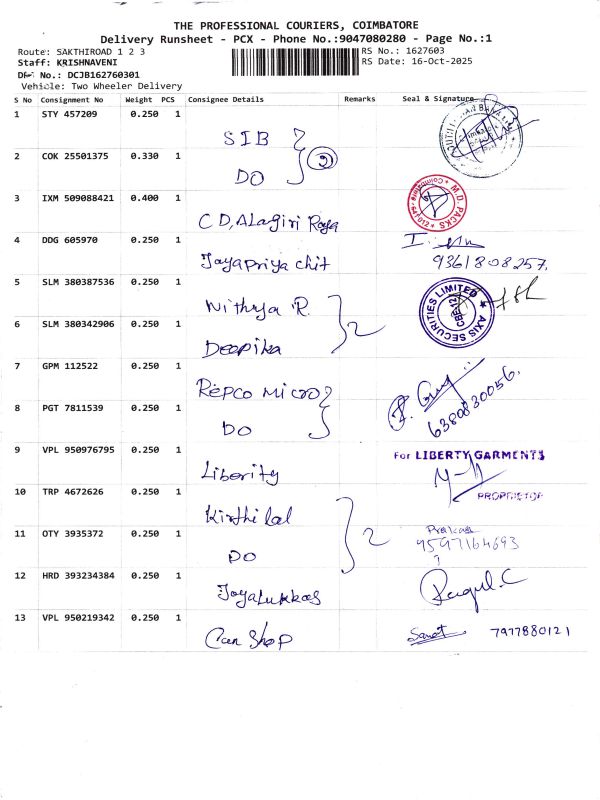 THE PROFESSIONAL COURIERS, COIMBATORE
Delivery Runsheet - PCX - Phone No.:9047080280 - Page No.:1
Route: SAKTHIROAD 1 2 3
RS No.: 1627603
Staff: KRISHNAVENI
RS Date: 16-Oct-2025
DRS No.: DCJB162760301
Vehicle: Two Wheeler Delivery
S No Consignment No Weight PCS Consignee Details Remarks Seal & Signature
1 STY 457209 0.250 1
SIB
2 COK 25501375 0.330 1
DO
3 IXM 509088421 0.400 1
M.D. PACKS
C D, Alagiri Raja
4 DDG 605970 0.250 1
Jayapriya chit 9361808257,
5 SLM 380387536 0.250 1
Nithya R. 2
AXIS SECURITIES LIMITED
CBE-12
6 SLM 380342906 0.250 1
Deepika
7 GPM 112522 0.250 1
Repco Micro
6380830056.
8 PGT 7811539 0.250 1
DO
9 VPL 950976795 0.250 1
For LIBERTY GARMENTS
Liberity
PROPRIETOR
10 TRP 4672626 0.250 1
Kirthilal 2
11 OTY 3935372 0.250 1
Prakash
9597164693
DO
12 HRD 393234384 0.250 1
Joyalukkas Ragul.C
13 VPL 950219342 0.250 1
Can Shop 7977880121